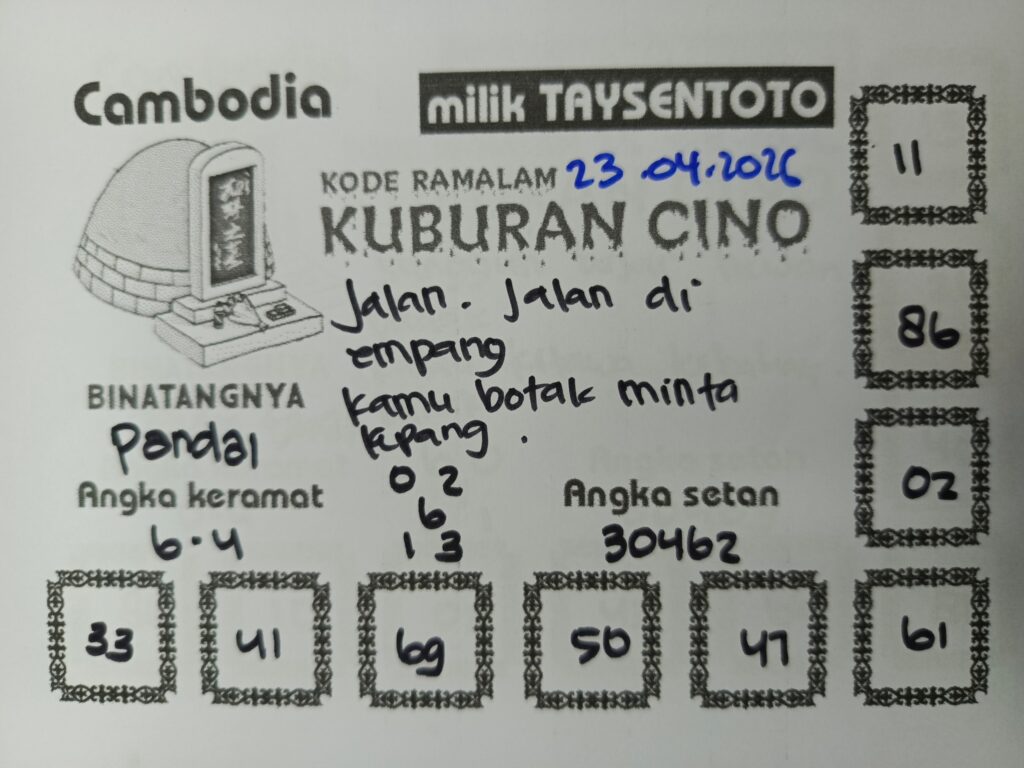 Cambodia
milik TAYSENTOTO
KODE RAMALAM 23.04.2026
KUBURAN CINO
Jalan. Jalan di
empang
kamu botak minta
kepang.
BINATANGNYA
Pandai
Angka keramat
6.4
0 2
6
1 3
Angka setan
30462
11
86
02
33
41
69
50
47
61